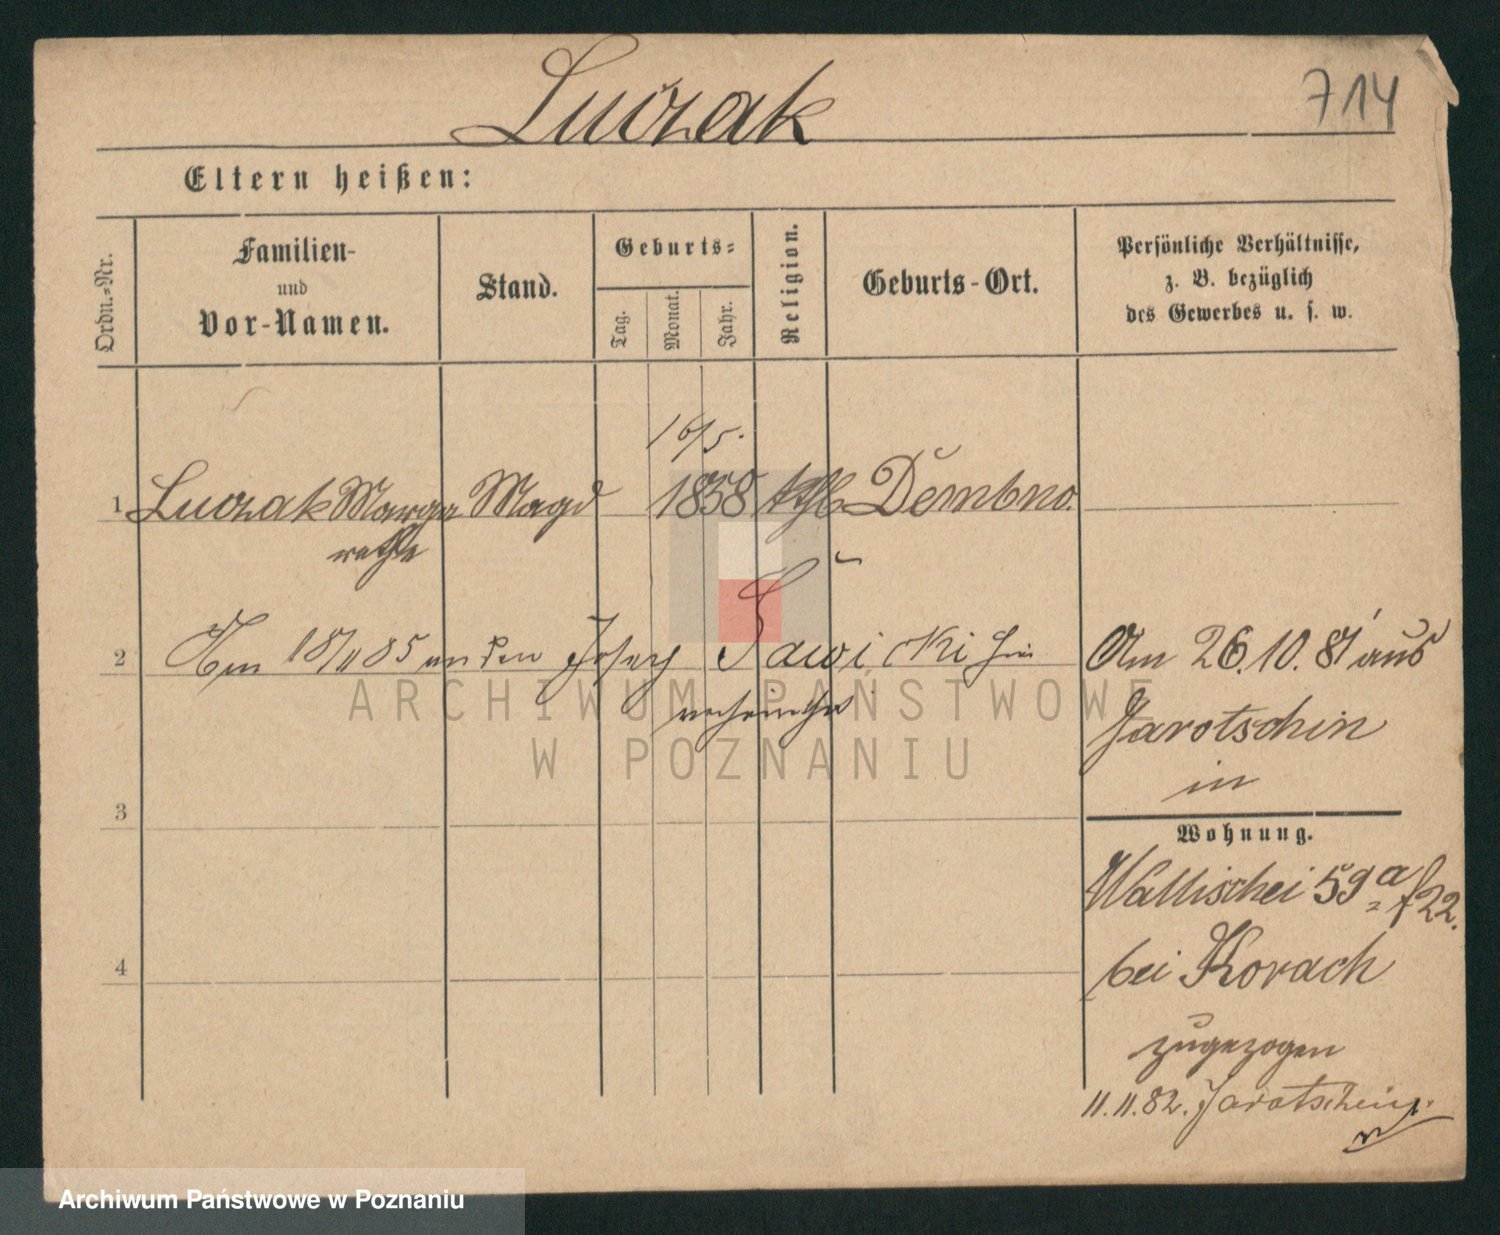 Luczak
714
Eltern heißen:
Ordn.-Nr.
Familien-
und
Vor-Namen.
Stand.
Geburts-
Tag.
Monat.
Jahr.
Religion.
Geburts-Ort.
Persönliche Verhältnisse,
z. B. bezüglich
des Gewerbes u. s. w.
16/5.
1 Luczak Marga Magd 1858 kth Dembno.
rethe
2 Am 18/11 85 an den Josef Sawicki hier
verheirathet
Am 26.10.81 aus
Jarotschin
in
3
Wohnung.
Wallischei 59a f 22.
4
bei Korach
zugezogen
11.11.82. Jarotschin.
ARCHIWUM PAŃSTWOWE
W POZNANIU
Archiwum Państwowe w Poznaniu